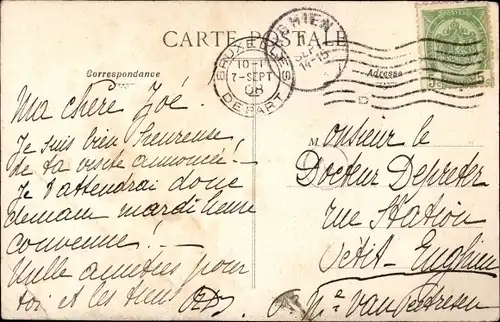 CARTE POSTALE
Correspondance
Adresse
BRUXELLES
10-11
7-SEPT
08
DEPART
GHIEN
SEPT
Ma chère Zoé.
Je suis bien heureuse
de ta visite annoncée!
Je t'attendrai donc
demain mardi heure
convenue! —
Mille amitiés pour
toi et les tiens
M
onsieur le
Docteur Depreter
rue Station
Petit-Enghien
5c
5c